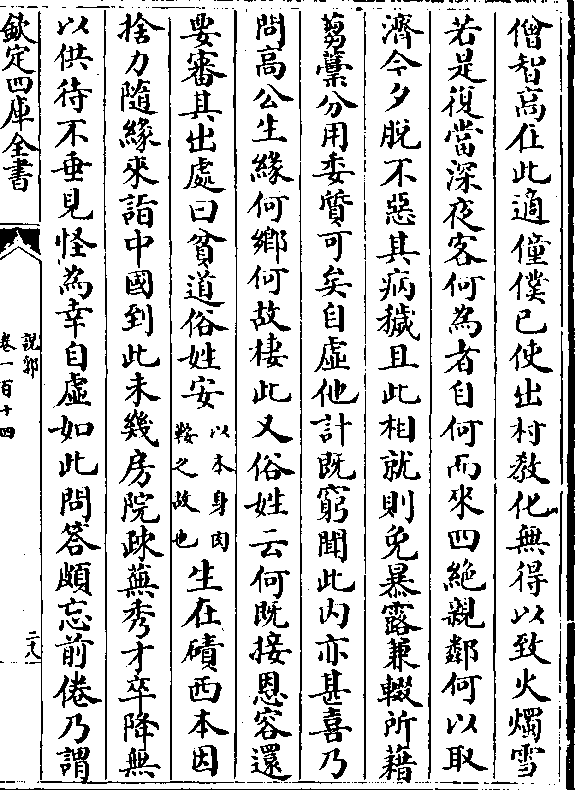 僧智高住此適僮僕已使出村教化無得以致火燭雪
若是復當深夜客何為者自何而來四絶親鄰何以取
濟今夕脱不惡其病穢且此相就則免暴露兼輟所藉
蒭藁分用委質可矣自虛他計既窮聞此内亦甚喜乃
問高公生緣何鄉何故棲此又俗姓云何既接恩容還
要審其出處曰貧道俗姓安以本身肉鞍之故也生在磧西本因
捨力隨緣來詣中國到此未幾房院疎蕪秀才卒降無
以供待不垂見怪為幸自虛如此問答頗忘前倦乃謂
欽定四庫全書
説郛
卷一百十四
二八